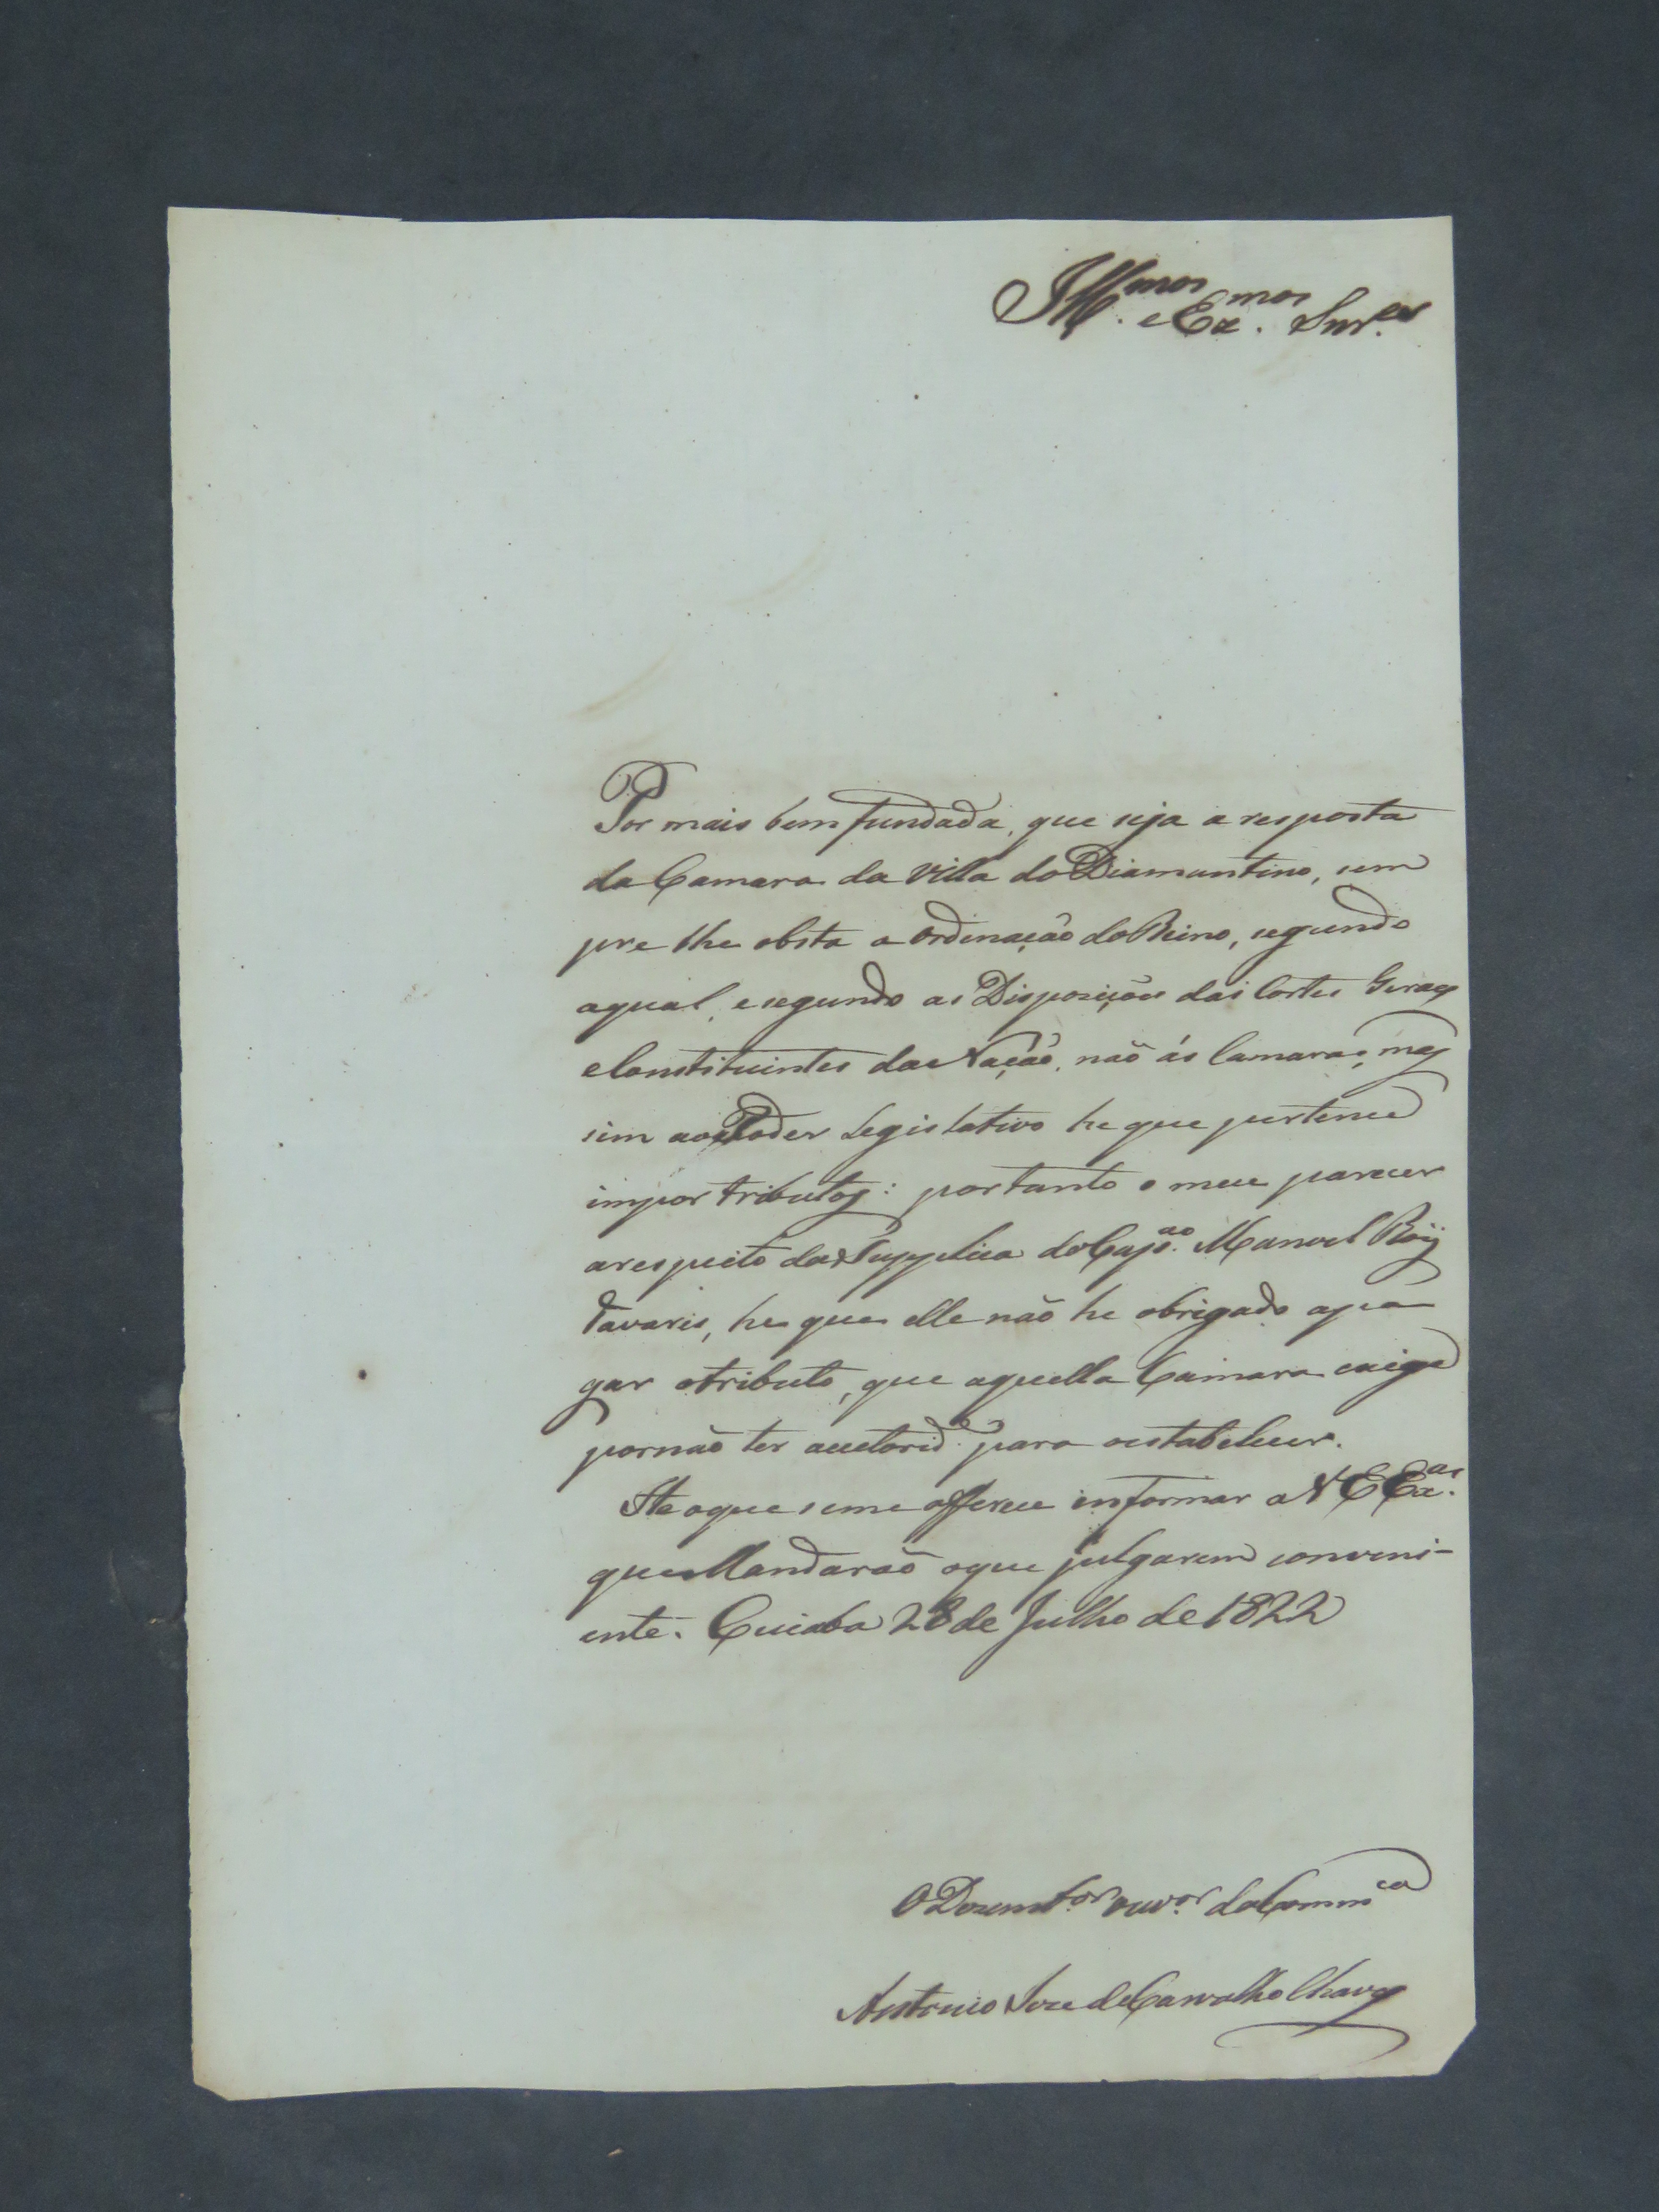 Ill.mos e Ex.mos Snr.es
Por mais bem fundada, que seja a resposta
da Camara da Villa do Diamantino, sem
pre lhe obsta a Ordenação do Reino, segundo
aqual, e segundo as Disposições das Cortes Geraes
e Constituintes da Nação, não ás Camaras, mas
sim ao Poder Legislativo he que pertence
impor tributos: portanto o meu parecer
arespeito da Supplica do Cap.ao Manoel Roiz
Tavares, he que elle não he obrigado apa
gar otributo, que aquella Camara exige
pornão ter auctorid.e para oestabelecer.
He oque seme offerece informar a V E Ex.as
que Mandarão oque julgarem conveni-
ente. Cuiaba 28 de Julho de 1822
O Dezemb.or Ouv.or da Comm.ca
Antonio Joze de Carvalho Chaves